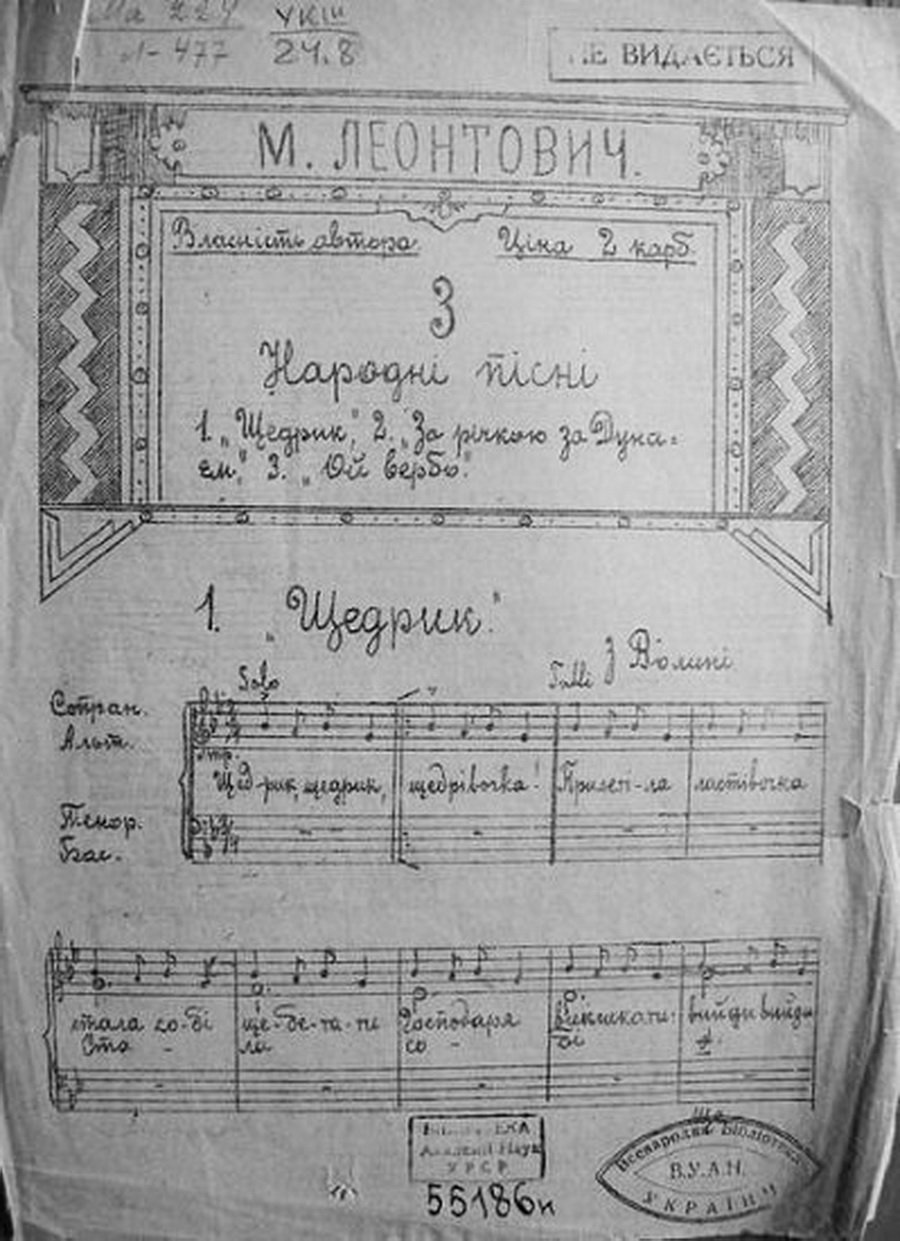 Ма 224 УКІШ
477 24.8
НЕ ВИДАЄТЬСЯ
М. ЛЕОНТОВИЧ.
Власність автора. Ціна 2 карб.
3
Народні пісні
1. „Щедрик", 2. „За річкою за Дуна=
єм", 3. „Ой вербо".
1. „Щедрик".
З Волині
Solo Tutti
Сопран.
Альт.
Щед-рик, щедрик, щедрівочка! Прилеті-ла ластівочка
Тенор.
Бас.
стала со-бі ще-бе-та-ти Господаря викликати: вийди вийди
Ста - ла со - бі
БІБЛІОТЕКА
Академії Наук
УРСР
55186н
Всенародня Бібліотека
В.У.А.Н.
УКРАЇНИ